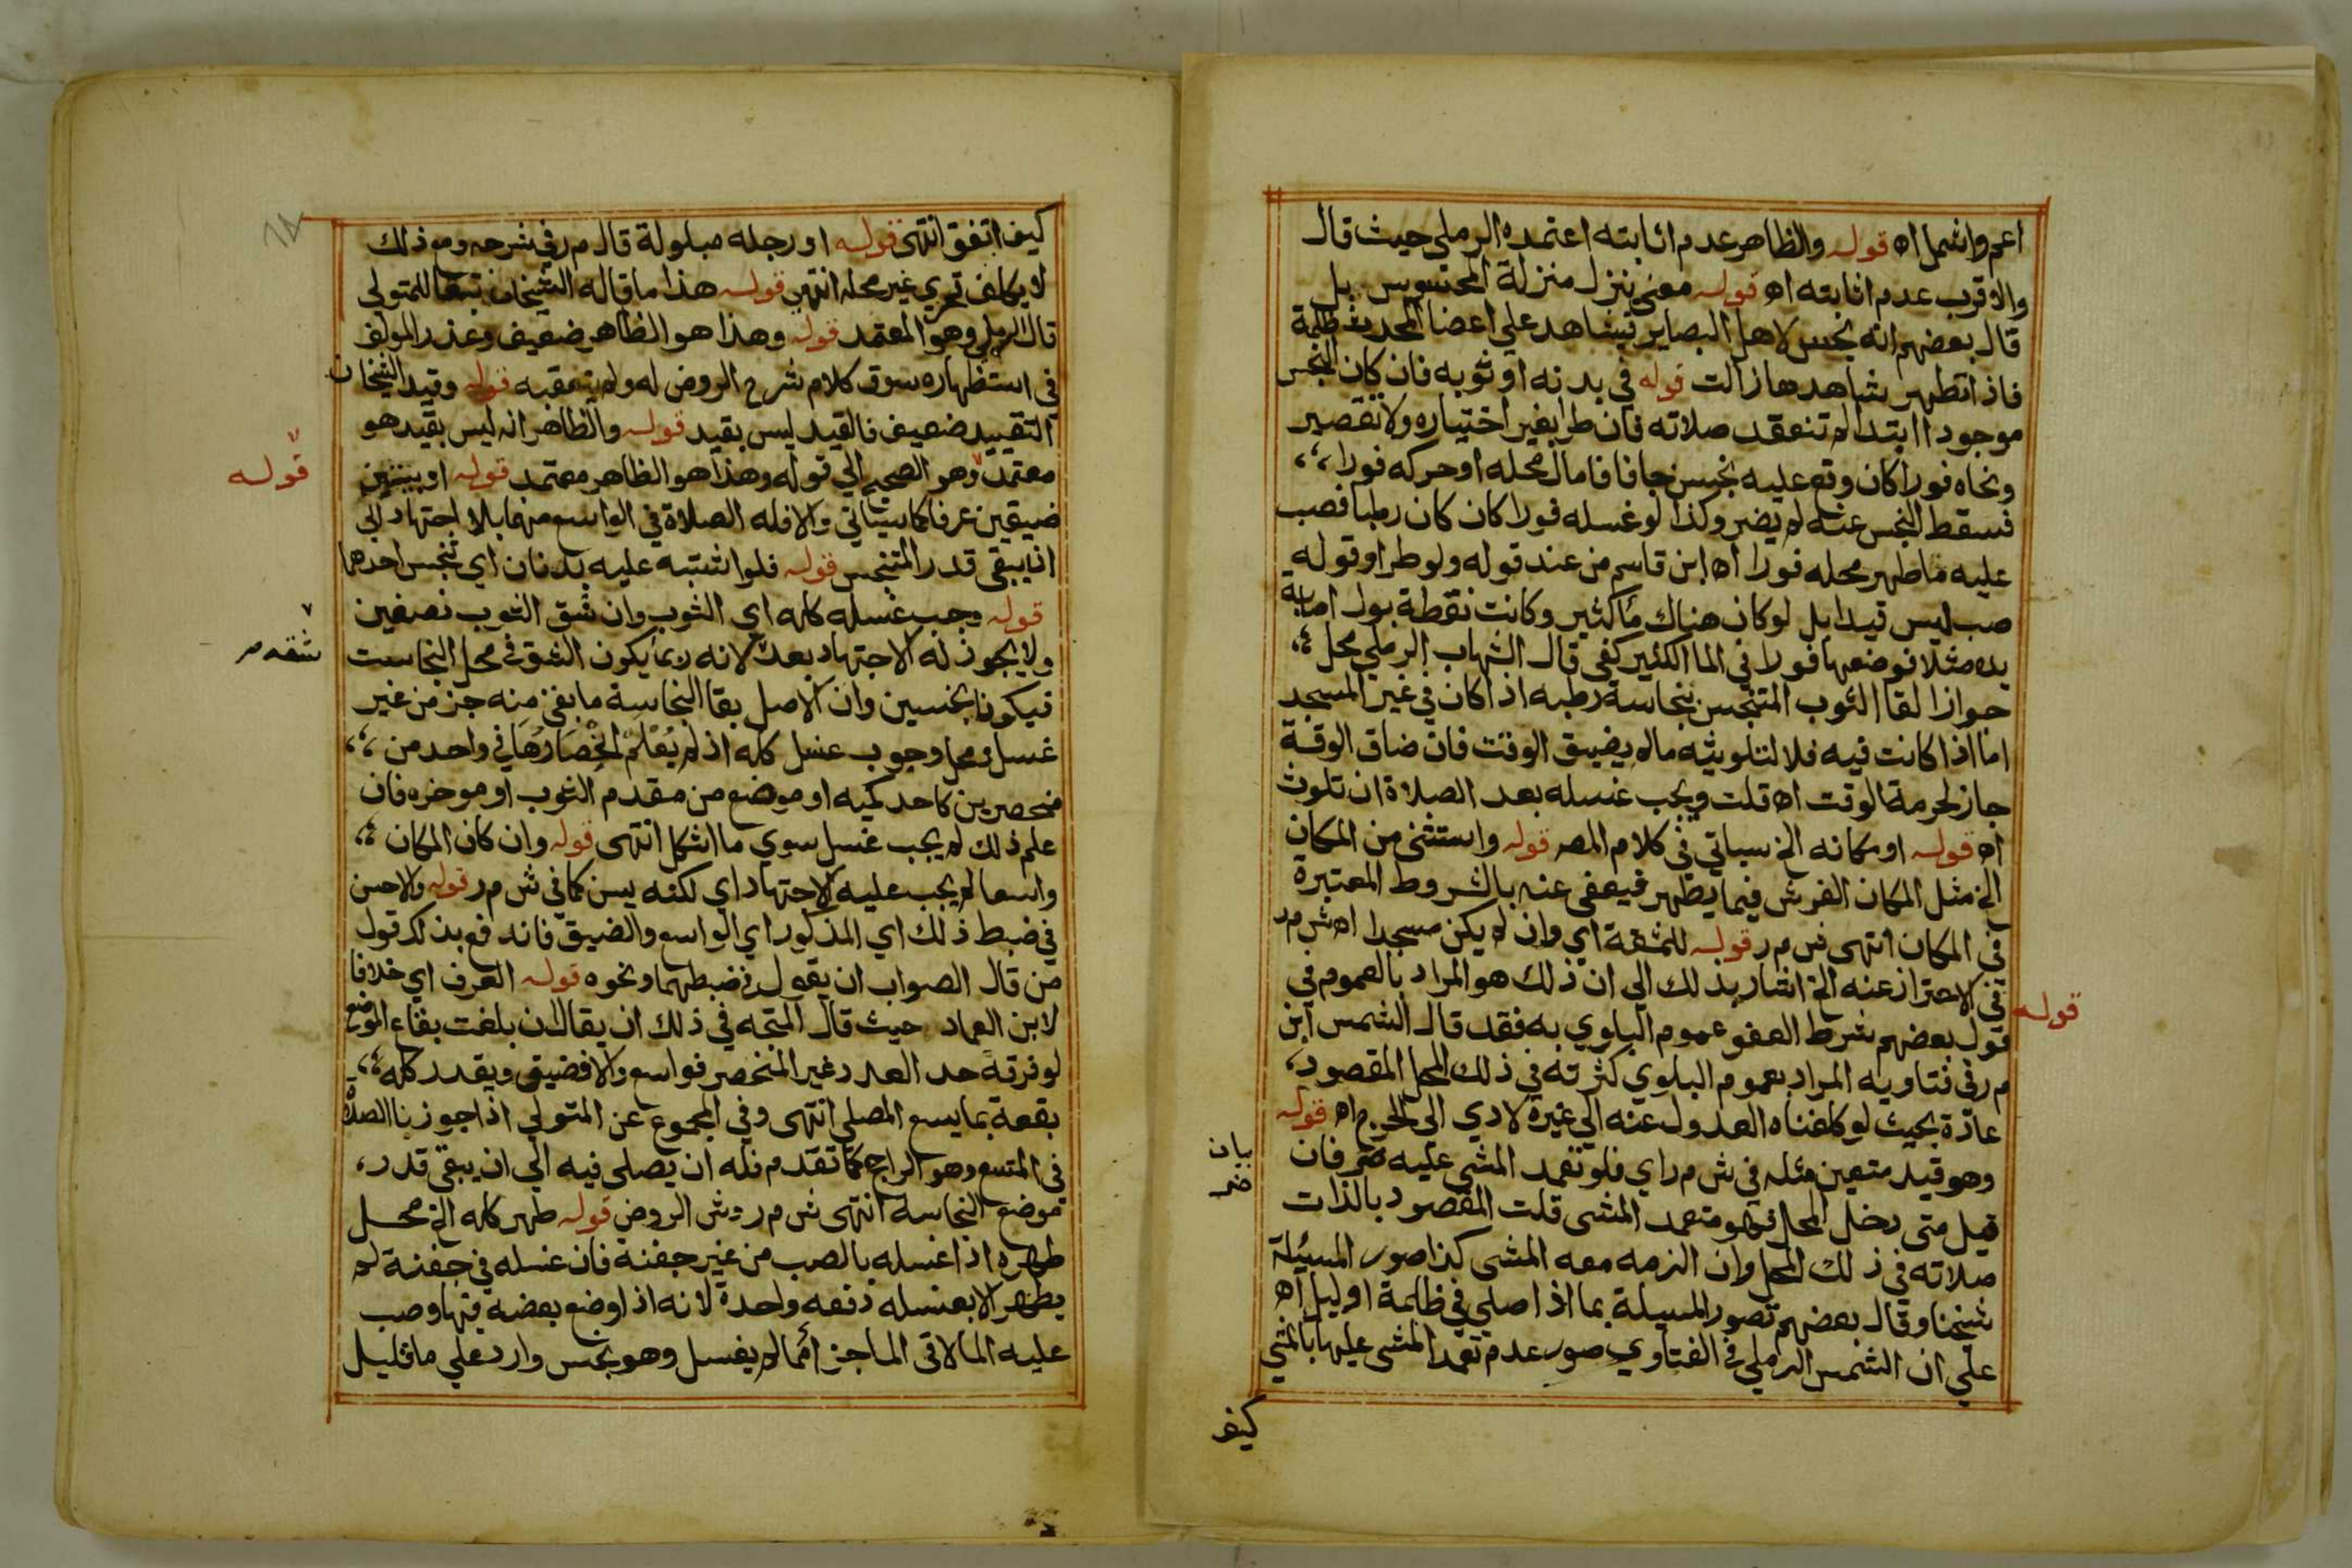 اعم واشمل اه قوله والظاهر عدم اثابته اعتمده الرملي حيث قال
والاقرب عدم اثابته اه قوله معنى ينزل منزلة المحسوس بل
قال بعضهم انه نجس لاهل البصاير تشاهد علي اعضا المحدث ظلمة
فاذا تطهر شاهدها زالت قوله في بدنه او ثوبه فان كان النجس
موجودا ابتدا لم تنعقد صلاته فان طرا بغير اختياره ولا تقصير
ونحاه فورا كان وقع عليه نجس جافا فامال محله او حركه فورا
فسقط النجس عنه لم يضر وكذا لو غسله فورا كان كان رطبا فصب
عليه ما طهر محله فورا اه ابن قاسم من عند قوله ولو طرا وقوله
صب ليس قيدا بل لو كان هناك ما كثير وكانت نقطة بول اصابة
يده مثلا فوضعها فورا في الما الكثير كفى قال الشهاب الرملي محل
جواز القا الثوب المتنجس بنجاسة رطبه اذا كان في غير المسجد
اما اذا كانت فيه فلا لتلويثه ما لم يضيق الوقت فان ضاق الوقت
جاز لحرمة الوقت اه قلت ويجب غسله بعد الصلاة ان تلوث
اه قوله او مكانه الخ سياتي في كلام المص قوله واستثنى من المكان
الخ مثل المكان الفرش فيما يظهر فيعفى عنه بالشروط المعتبرة
في المكان انتهى ش م ر قوله للمشقة اي وان لم يكن مسجدا اه ش م ر
في الاحتراز عنه الخ اشار بذلك الي ان ذلك هو المراد بالعموم في
قوله
قول بعضهم شرط العفو عموم البلوي به فقد قال الشمس ابن
م ر في فتاويه المراد بعموم البلوي كثرته في ذلك المحل المقصود
عادة بحيث لو كلفناه العدول عنه الي غيره لادي الي الحرج اه قوله
وهو قيد متعين مثله في ش م ر اي فلو تعمد المشي عليه ضر فان
بيان
ضر
قيل متى دخل المحل فهو متعمد المشي قلت المقصود بالذات
صلاته في ذلك المحل وان الزمه معه المشي كذا صور المسئلة
شيخنا وقال بعضهم تصور المسيلة بما اذا صلي في ظلمة او ليل اه
علي ان الشمس الرملي في الفتاوي صور عدم تعمد المشي عليها بالمشي
كيف
كيف اتفق انتهى قوله او رجله مبلولة قال م ر في شرحه ومع ذلك
لا يكلف تحري غير محله انتهى قوله هذا ما قاله الشيخان تبعا للمتولي
قال الرملي وهو المعتمد قوله وهذا هو الظاهر ضعيف وعذر المولف
في استظهاره سوق كلام شرح الروض له ولم يتعقبه قوله وقيد الشيخان
التقييد ضعيف فالقيد ليس بقيد قوله والظاهر انه ليس بقيد هو
معتمد وهو الصحيح الي قوله وهذا هو الظاهر معتمد قوله او بيتين
قوله
ضيقين عرفا كما سياتي والا فله الصلاة في الواسع منهما بلا اجتهاد الي
ان يبقى قدر المتنجس قوله فلو اشتبه عليه بدنان اي تنجس احدهما
قوله وجب غسله كله اي الثوب وان شق الثوب نصفين
ولا يجوز له الاجتهاد بعد لانه ربما يكون الشق في محل النجاست
شقه م
فيكونا نجسين وان الاصل بقا النجاسة ما بقي منه جز من غير
غسل ومحل وجوب غسل كله اذ لم يعلم انحصارها في واحد من
منحصرين كاحد كميه او موضع من مقدم الثوب او موخره فان
علم ذلك لم يجب غسل سوي ما اشكل انتهى قوله وان كان المكان
واسعا لم يجب عليه الاجتهاد اي لكنه يسن كما في ش م ر قوله والاحسن
في ضبط ذلك اي المذكور اي الواسع والضيق فانه دفع بذلك قول
من قال الصواب ان يقول في ضبطهما ونحوه قوله العرف اي خلافا
لابن العماد حيث قال المتجه في ذلك ان يقال ان بلغت بقاع الموضع
لو فرقة حد العدد غير المنحصر فواسع والا فضيق ويقدر كله
بقعة بما يسع المصلي انتهى وفي المجموع عن المتولي اذا جوزنا الصلاة
في المتسع وهو الراجح كما تقدم فله ان يصلي فيه الي ان يبقى قدر
موضع النجاسة انتهى ش م ر وش الروض قوله طهر كله الخ محل
طهره اذا غسله بالصب من غير جفنة فان غسله في جفنة لم
يطهر الا بغسله دفعه واحدة لانه اذا وضع بعضه فيها وصب
عليه الما لاقى الما جزأ مما لم يغسل وهو نجس وارد علي ما قليل